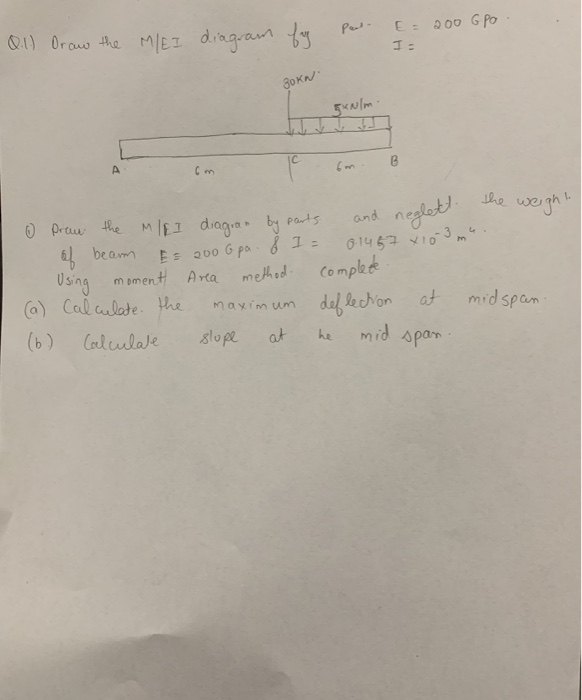 Q.1) Draw the M/EI diagram by Part- E = 200 GPa.
I =
30KN
5KN/m
A 6m C 6m B
① Draw the M/EI diagram by parts and neglect the weight
of beam E = 200 Gpa. & I = 0.1457 ×10⁻³ m⁴.
Using moment Area method. complete
(a) Calculate the maximum deflection at midspan.
(b) Calculate slope at he mid span.